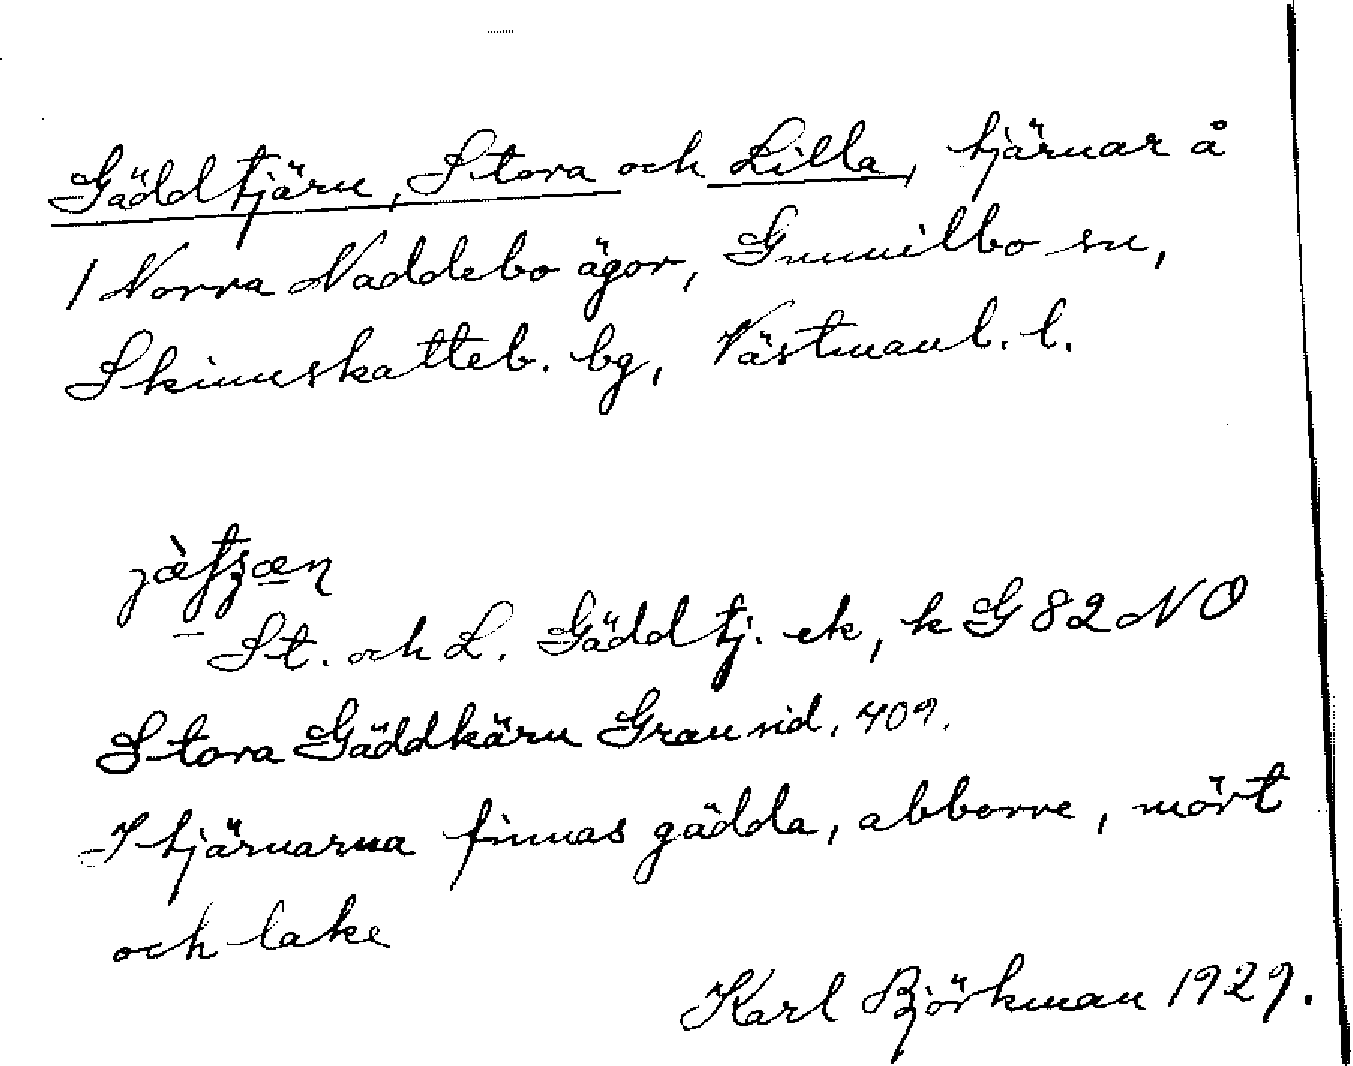 Gäddtjärn, Stora och Lilla, tjärnar å
/ Norra Naddebo ägor, Gunnilbo sn,
Skinnskatteb. bg, Västmanl. l.
St. och L. Gäddtj. ek, k G 82 NO
Stora Gäddkärn Grau sid. 409.
I tjärnarna finnas gädda, abborre, mört
och lake
Karl Björkman 1929.